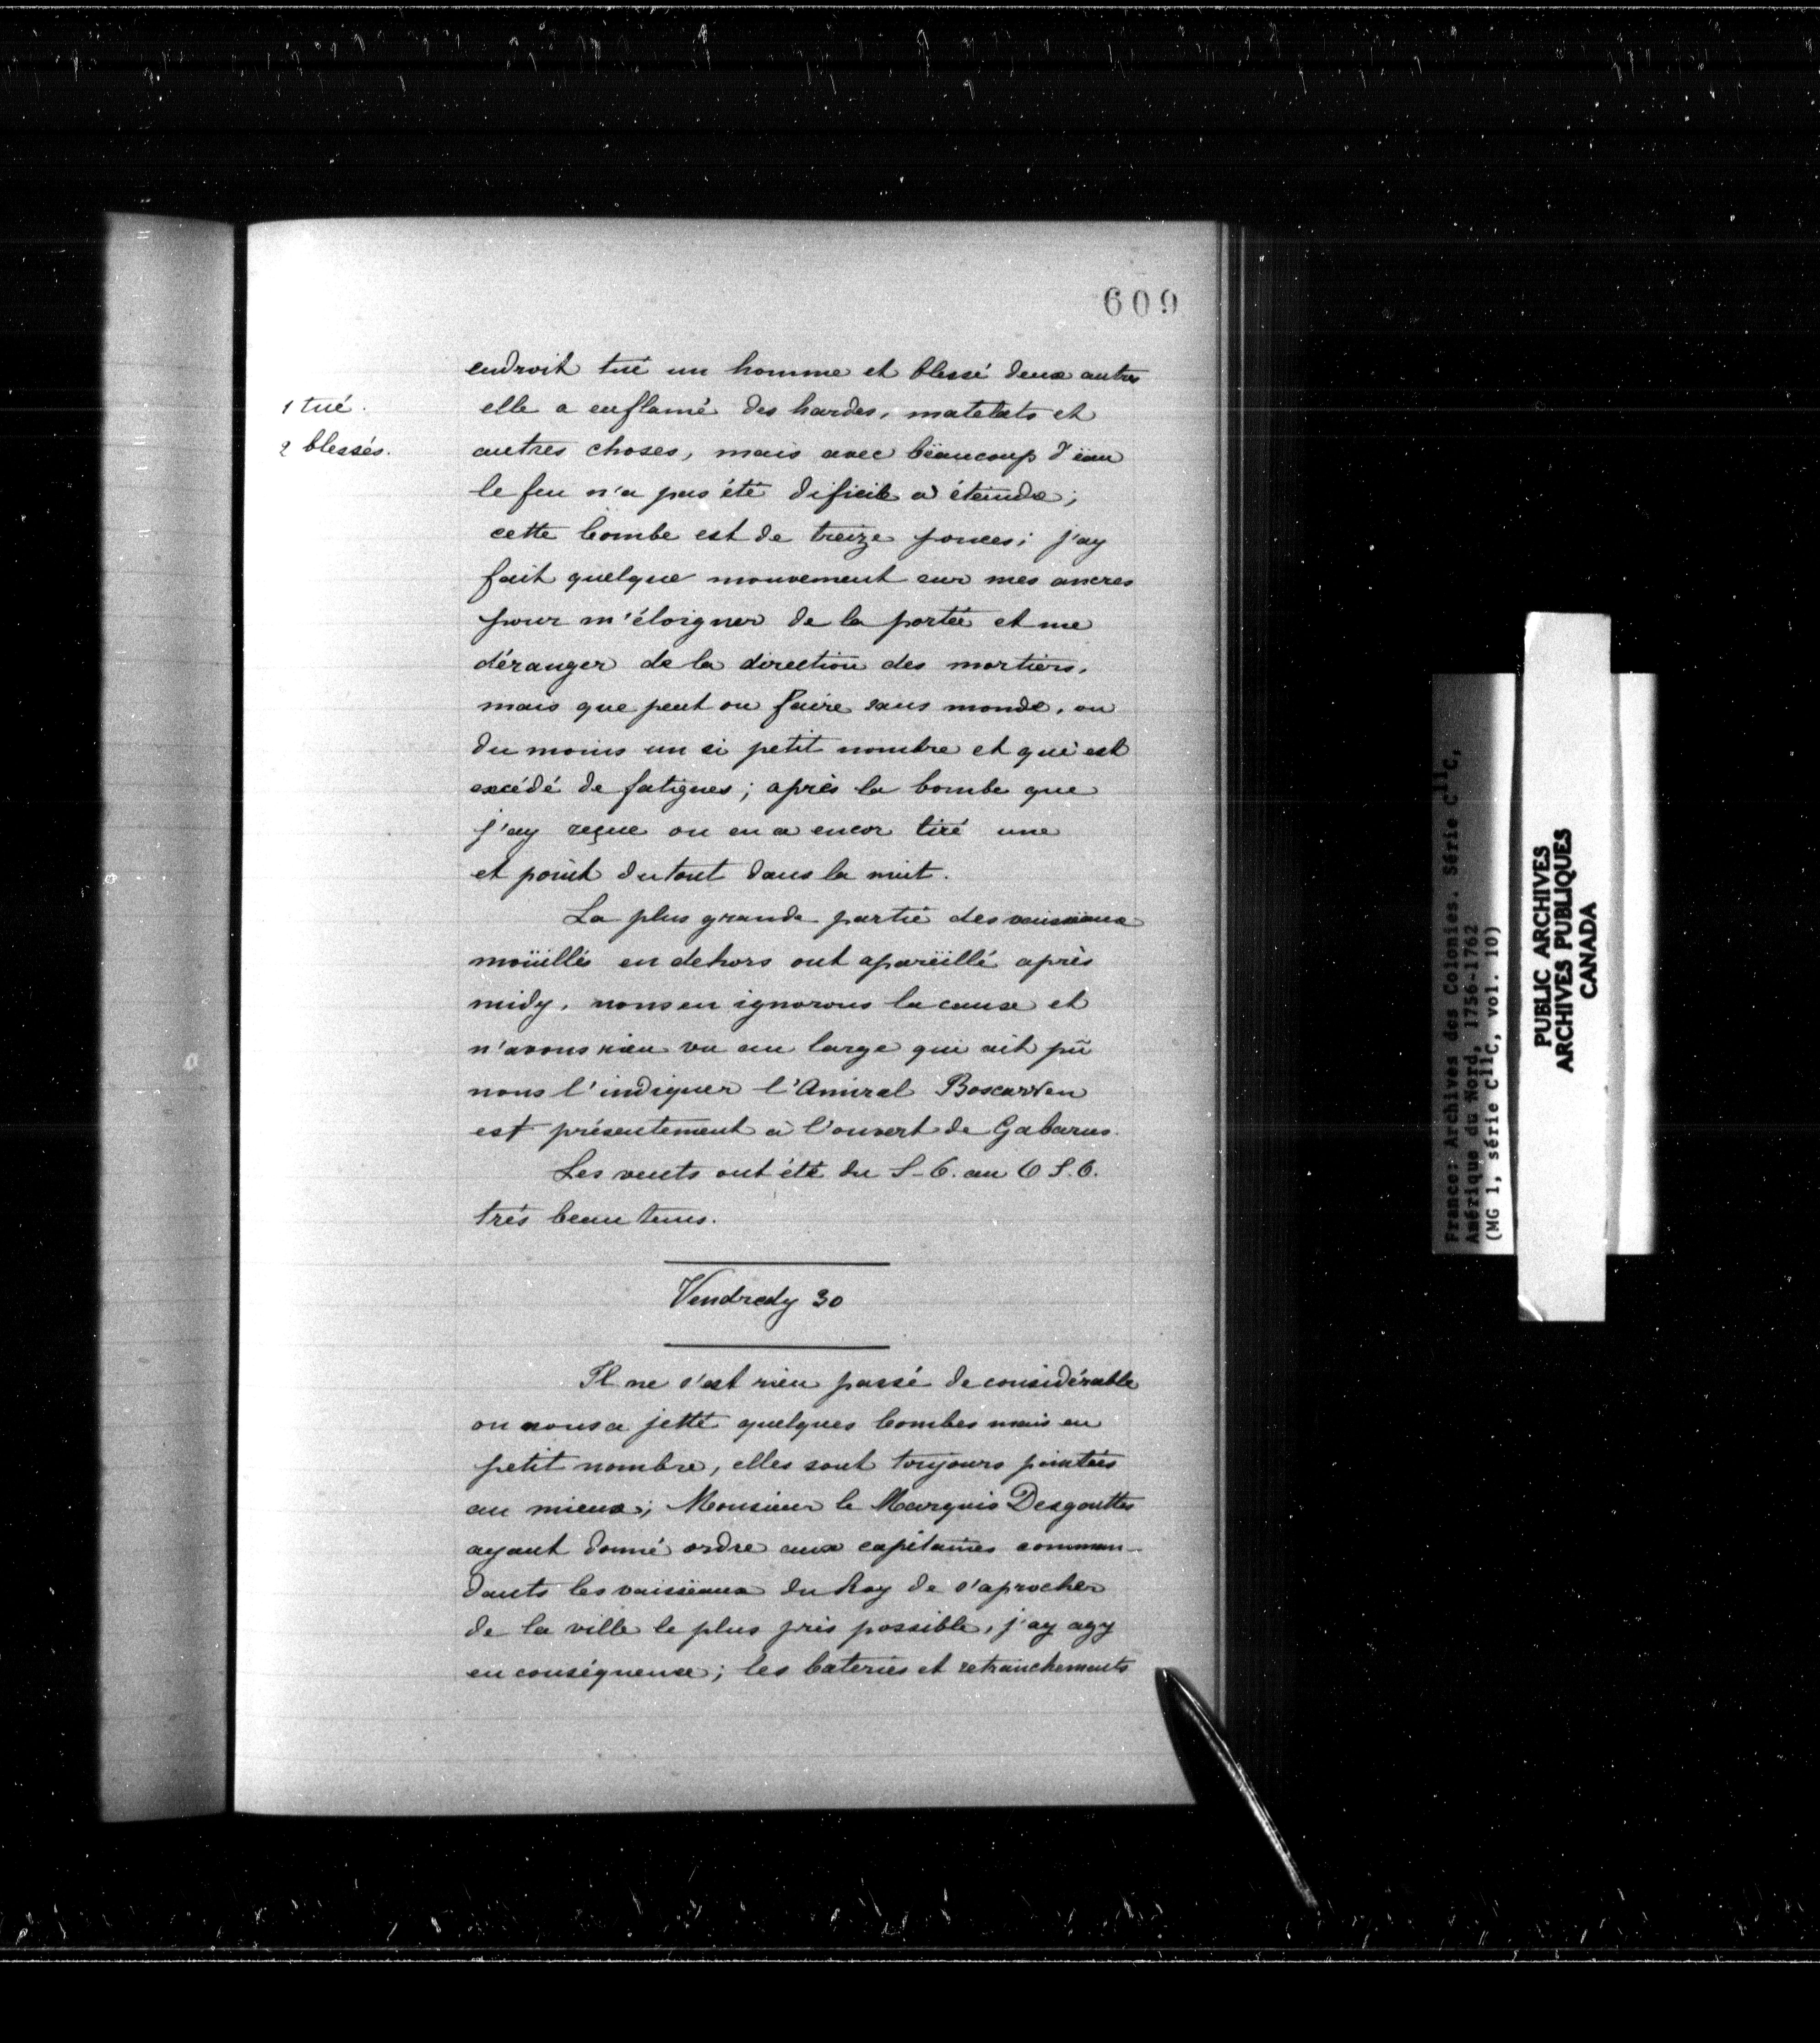 609
endroit tué un homme et blessé deux autres
1 tué.
elle a enflamé des hardes, matelats et
2 blessés.
autres choses, mais avec bëaucoup d'ëau
le feu n'a pas été dificile a éteindre;
cette bombe est de treize pouces; j'ay
fait quelque mouvement sur mes ancres
pour m'éloigner de la portée et me
déranger de la direction des mortiers,
mais que peut on faire sans monde, ou
du moins un si petit nombre et qui est
excédé de fatigues; après la bombe que
j'ay reçue on en a encor tiré une
et point du tout dans la nuit.
La plus grande partie des vaissëaux
moüillés en dehors ont apareïllé après
midy, nous en ignorons la cause et
n'avons rien vu au large qui ait pû
nous l'indiquer l'Amiral Boscawen
est présentement à l'ouvert de Gabarus.
Les vents ont été du S-O. au O S.O.
très beau tems.
Vendredy 30
Il ne s'est rien passé de considérable
on nous a jetté quelques bombes mais en
petit nombre, elles sont toujours pointées
au mieux; Monsieur le Marquis Desgouttes
ayant donné ordre aux capitaines comman-
dants les vaissëaux du Roy de s'aprocher
de la ville le plus près possible, j'ay agy
en conséquence; les bateries et retranchements
France: Archives des Colonies. Série C11C,
Amérique du Nord, 1756-1762
(MG 1, série C11C, vol. 10)
PUBLIC ARCHIVES
ARCHIVES PUBLIQUES
CANADA